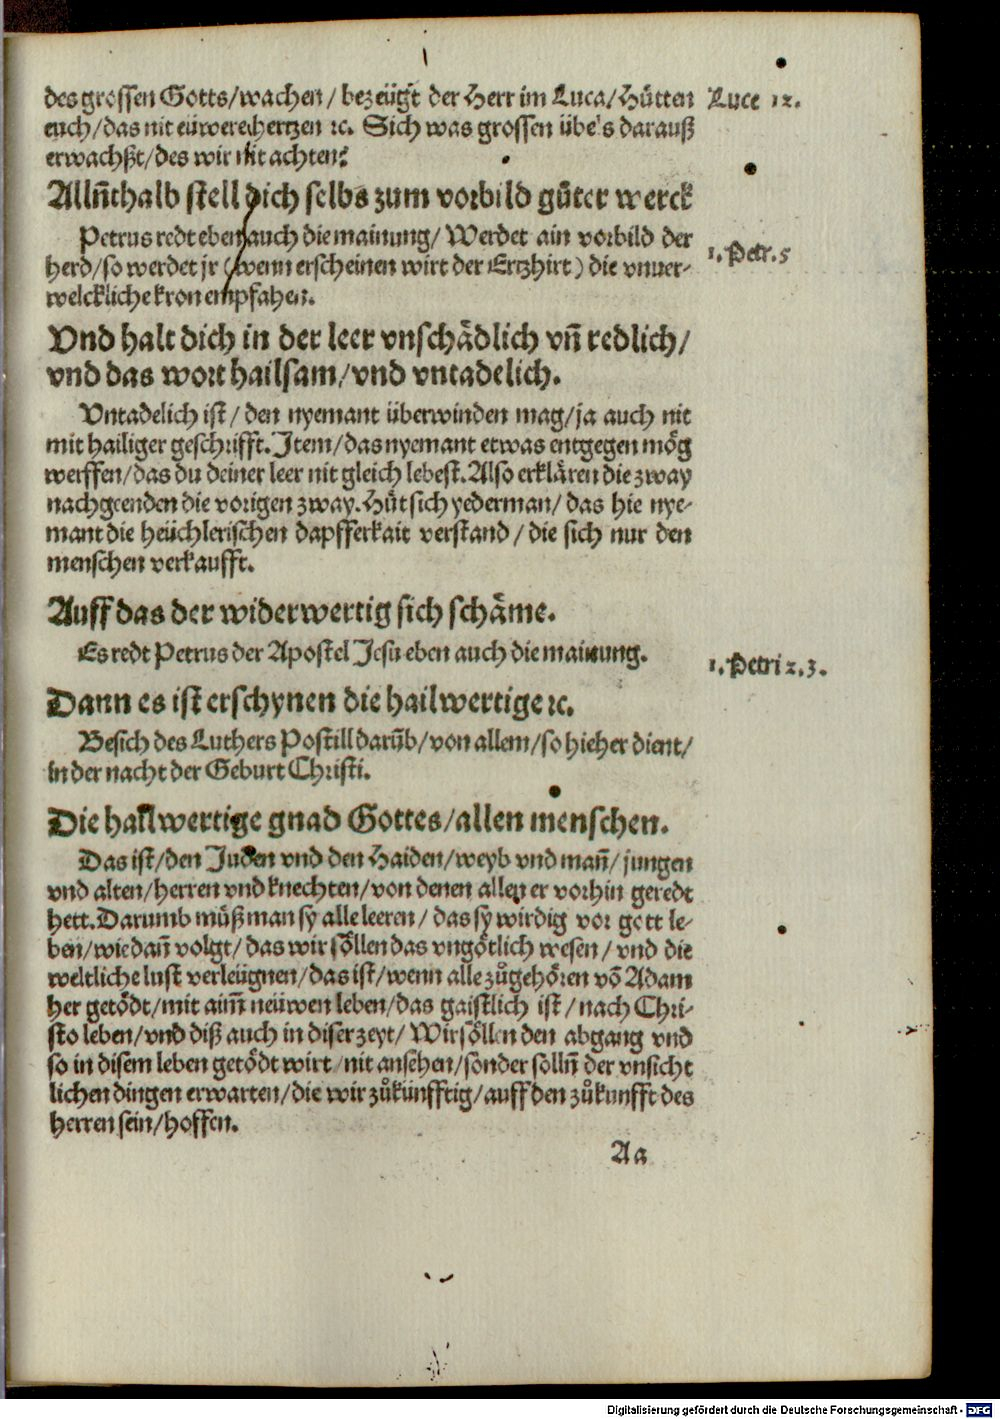 des grossen Gotts/wachen/ bezeügt der Herr im Luca/Hütten
Luce 12.
euch/das nit eüwere hertzen ⁊c. Sich was grossen übels darauß
erwachßt/des wir nit achten.
Allñthalb stell dich selbs zum vorbild gůter werck
Petrus redt eben auch die mainung/ Werdet ain vorbild der
1. Petr. 5
herd/so werdet jr (wenn erscheinen wirt der Ertzhirt) die vnuer-
welckliche kron empfahen.
Vnd halt dich in der leer vnschådlich vñ redlich/
vnd das wort hailsam/vnd vntadelich.
Vntadelich ist/ den nyemant überwinden mag/ja auch nit
mit hailiger geschrifft. Item/das nyemant etwas entgegen mög
werffen/das du deiner leer nit gleich lebest. Also erklären die zway
nachgeenden die vorigen zway. Hüt sich yederman/ das hie nye-
mant die heüchlerischen dapfferkait verstand/ die sich nur den
menschen verkaufft.
Auff das der widerwertig sich schäme.
Es redt Petrus der Apostel Jesu eben auch die mainung.
1. Petri 2. 3.
Dann es ist erschynen die hailwertige ⁊c.
Besich des Luthers Postill darüb/von allem/so hieher dient/
in der nacht der Geburt Christi.
Die hailwertige gnad Gottes/allen menschen.
Das ist/den Juden vnd den Haiden/weyb vnd mañ/ jungen
vnd alten/herren vnd knechten/von denen allen er vorhin geredt
hett. Darumb můß man sy alle leeren/ das sy wirdig vor gott le-
ben/wie dañ volgt/das wir söllen das vngötlich wesen/ vnd die
weltliche lust verleügnen/das ist/wenn alle zůgehören võ Adam
her getödt/mit aim̃ neüwen leben/das gaistlich ist/ nach Chri-
sto leben/vnd diß auch in diser zeyt/ Wir söllen den abgang vnd
so in disem leben getödt wirt/nit ansehen/sonder solln̄ der vnsicht
lichen dingen erwarten/die wir zůkünfftig/auff den zůkunfft des
herren sein/hoffen.
Aa
Digitalisierung gefördert durch die Deutsche Forschungsgemeinschaft - DFG